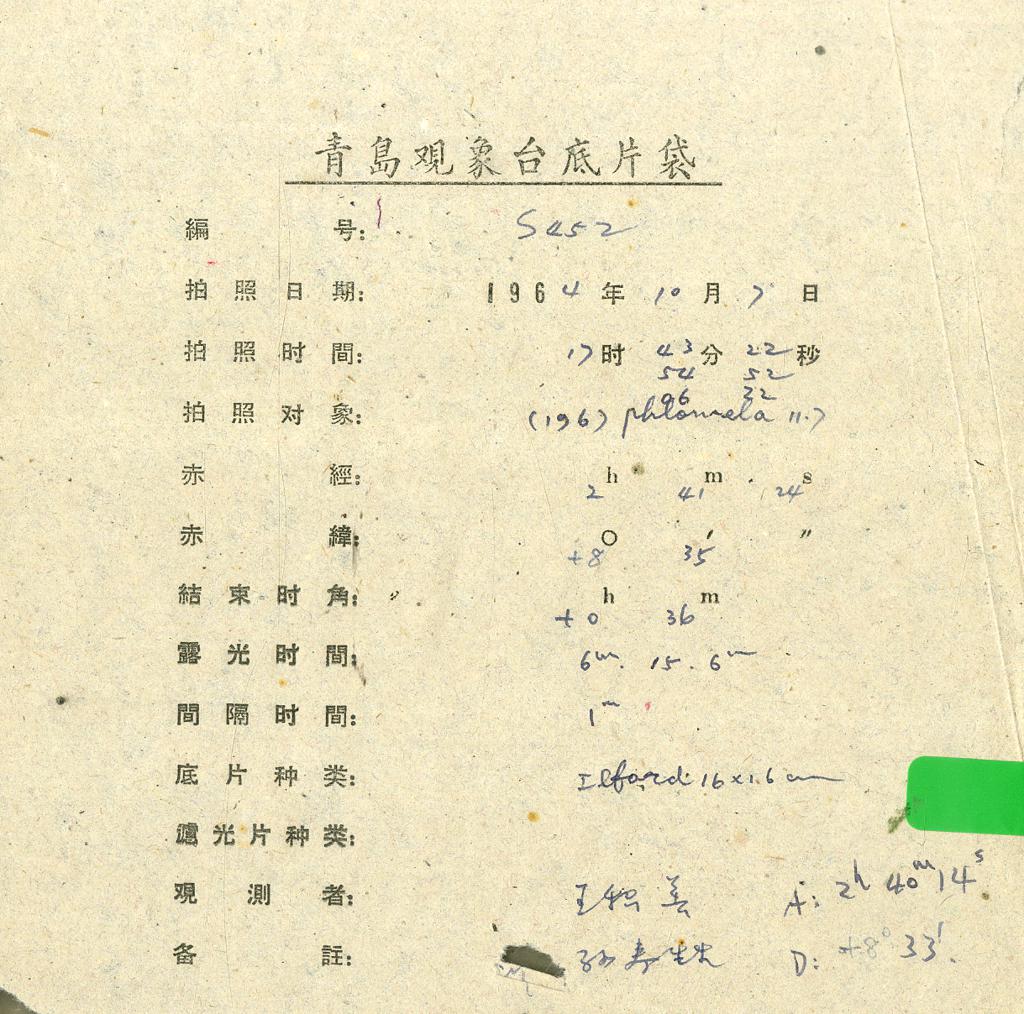 青島观象台底片袋
編 号: S452
拍照日期: 1964年10月7日
拍照时間: 17时43分22秒
54 52
06 32
拍照对象: (196) philomela 11.7
赤 經: 2h 41m 24s
赤 緯: +8° 35′ ″
結束时角: +0h 36m
露光时間: 6m. 15. 6m
間隔时間: 1m
底片种类: Ilford: 16×16cm
濾光片种类:
观測者: 王 善 A: 2h 40m 14s
备 註: 孙寿 D: +8° 33′.